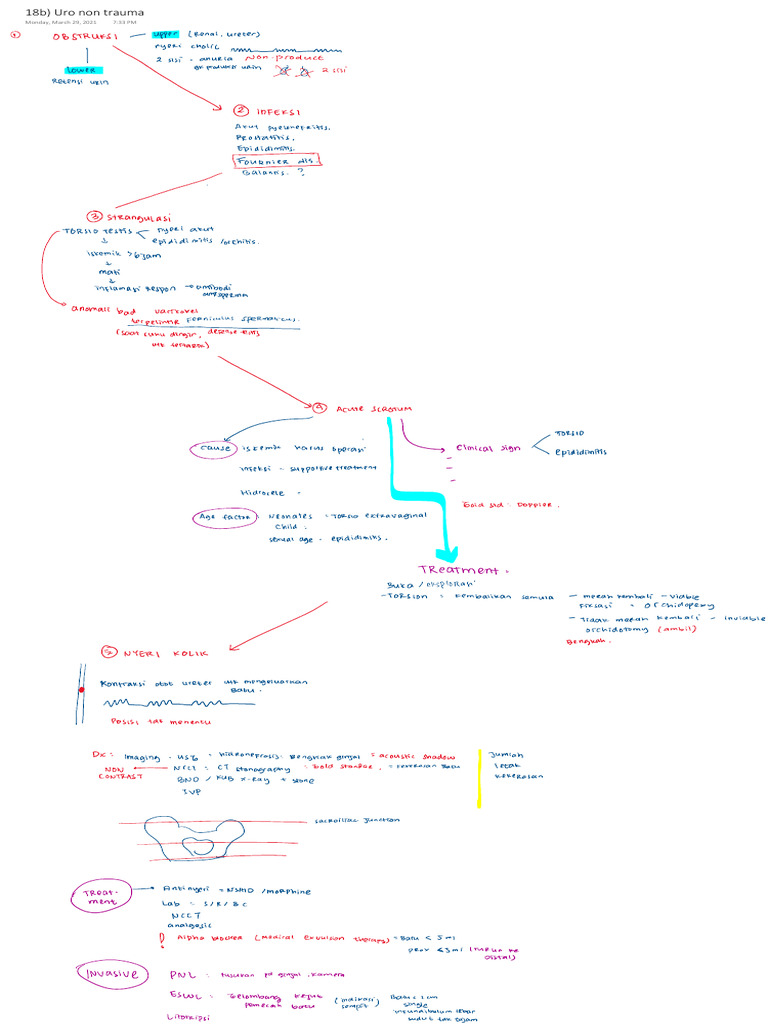 18b) Uro non trauma
Monday, March 29, 2021 7:33 PM
① OBSTRUKSI — upper (Renal, ureter)
nyeri cholic
2 sisi - anuria Non-product
2 sisi
lower
Retensi urin
② INFEKSI
Akut pyelonefritis.
Prostatitis.
Epididimitis.
Fournier dis.
Balanits. ?
③ STRANGULASI
TORSIO TESTIS < nyeri akut
epididimitis /orchitis.
iskemik > 6jam
mati
inflamasi respon → antibodi
antisperma
anomali bad
terpelintir Funniculus spermaticus.
(saat suhu dingin,
④ ACUTE SCROTUM
cause iskemik harus operasi
infeksi - supportive treatment
Hidrocele -
clinical sign
TORSIO
epididimitis
Gold std : Doppler.
Age factor Neonates = Torsio extravaginal
child .
sexual age - epididimitis.
TReatment .
Buka / eksplorasi
-TORSION : kembalikan semula - merah kembali - viable
fiksasi = orchidopexy
- Tidak merah kembali - inviable
orchidotomy (ambil)
Bengkak.
⑤ NYERI KOLIK
Kontraksi otot ureter utk mengeluarkan
Batu .
Posisi tak menentu
Dx : imaging - USG = hidronefrosis: Bengkak ginjal = acoustic shadow
NON ← NCCT : CT = Gold standar . = kekerasan Batu
CONTRAST
BNO / KUB x-Ray + stone
IVP
Jumlah
letak
kekerasan
sacroiliac junction
TREAT-
ment
Antinyeri = NSAID /morphine
Lab :
NCCT
analgesic
! Alpha blocker (medical expulsion therapy) = Batu < 5 ml
INVASIVE
PNL : tusukan pd ginjal, kamera
ESWL : Gelombang kejut (indikasi)
pemecah batu sempit
single
Litotripsi